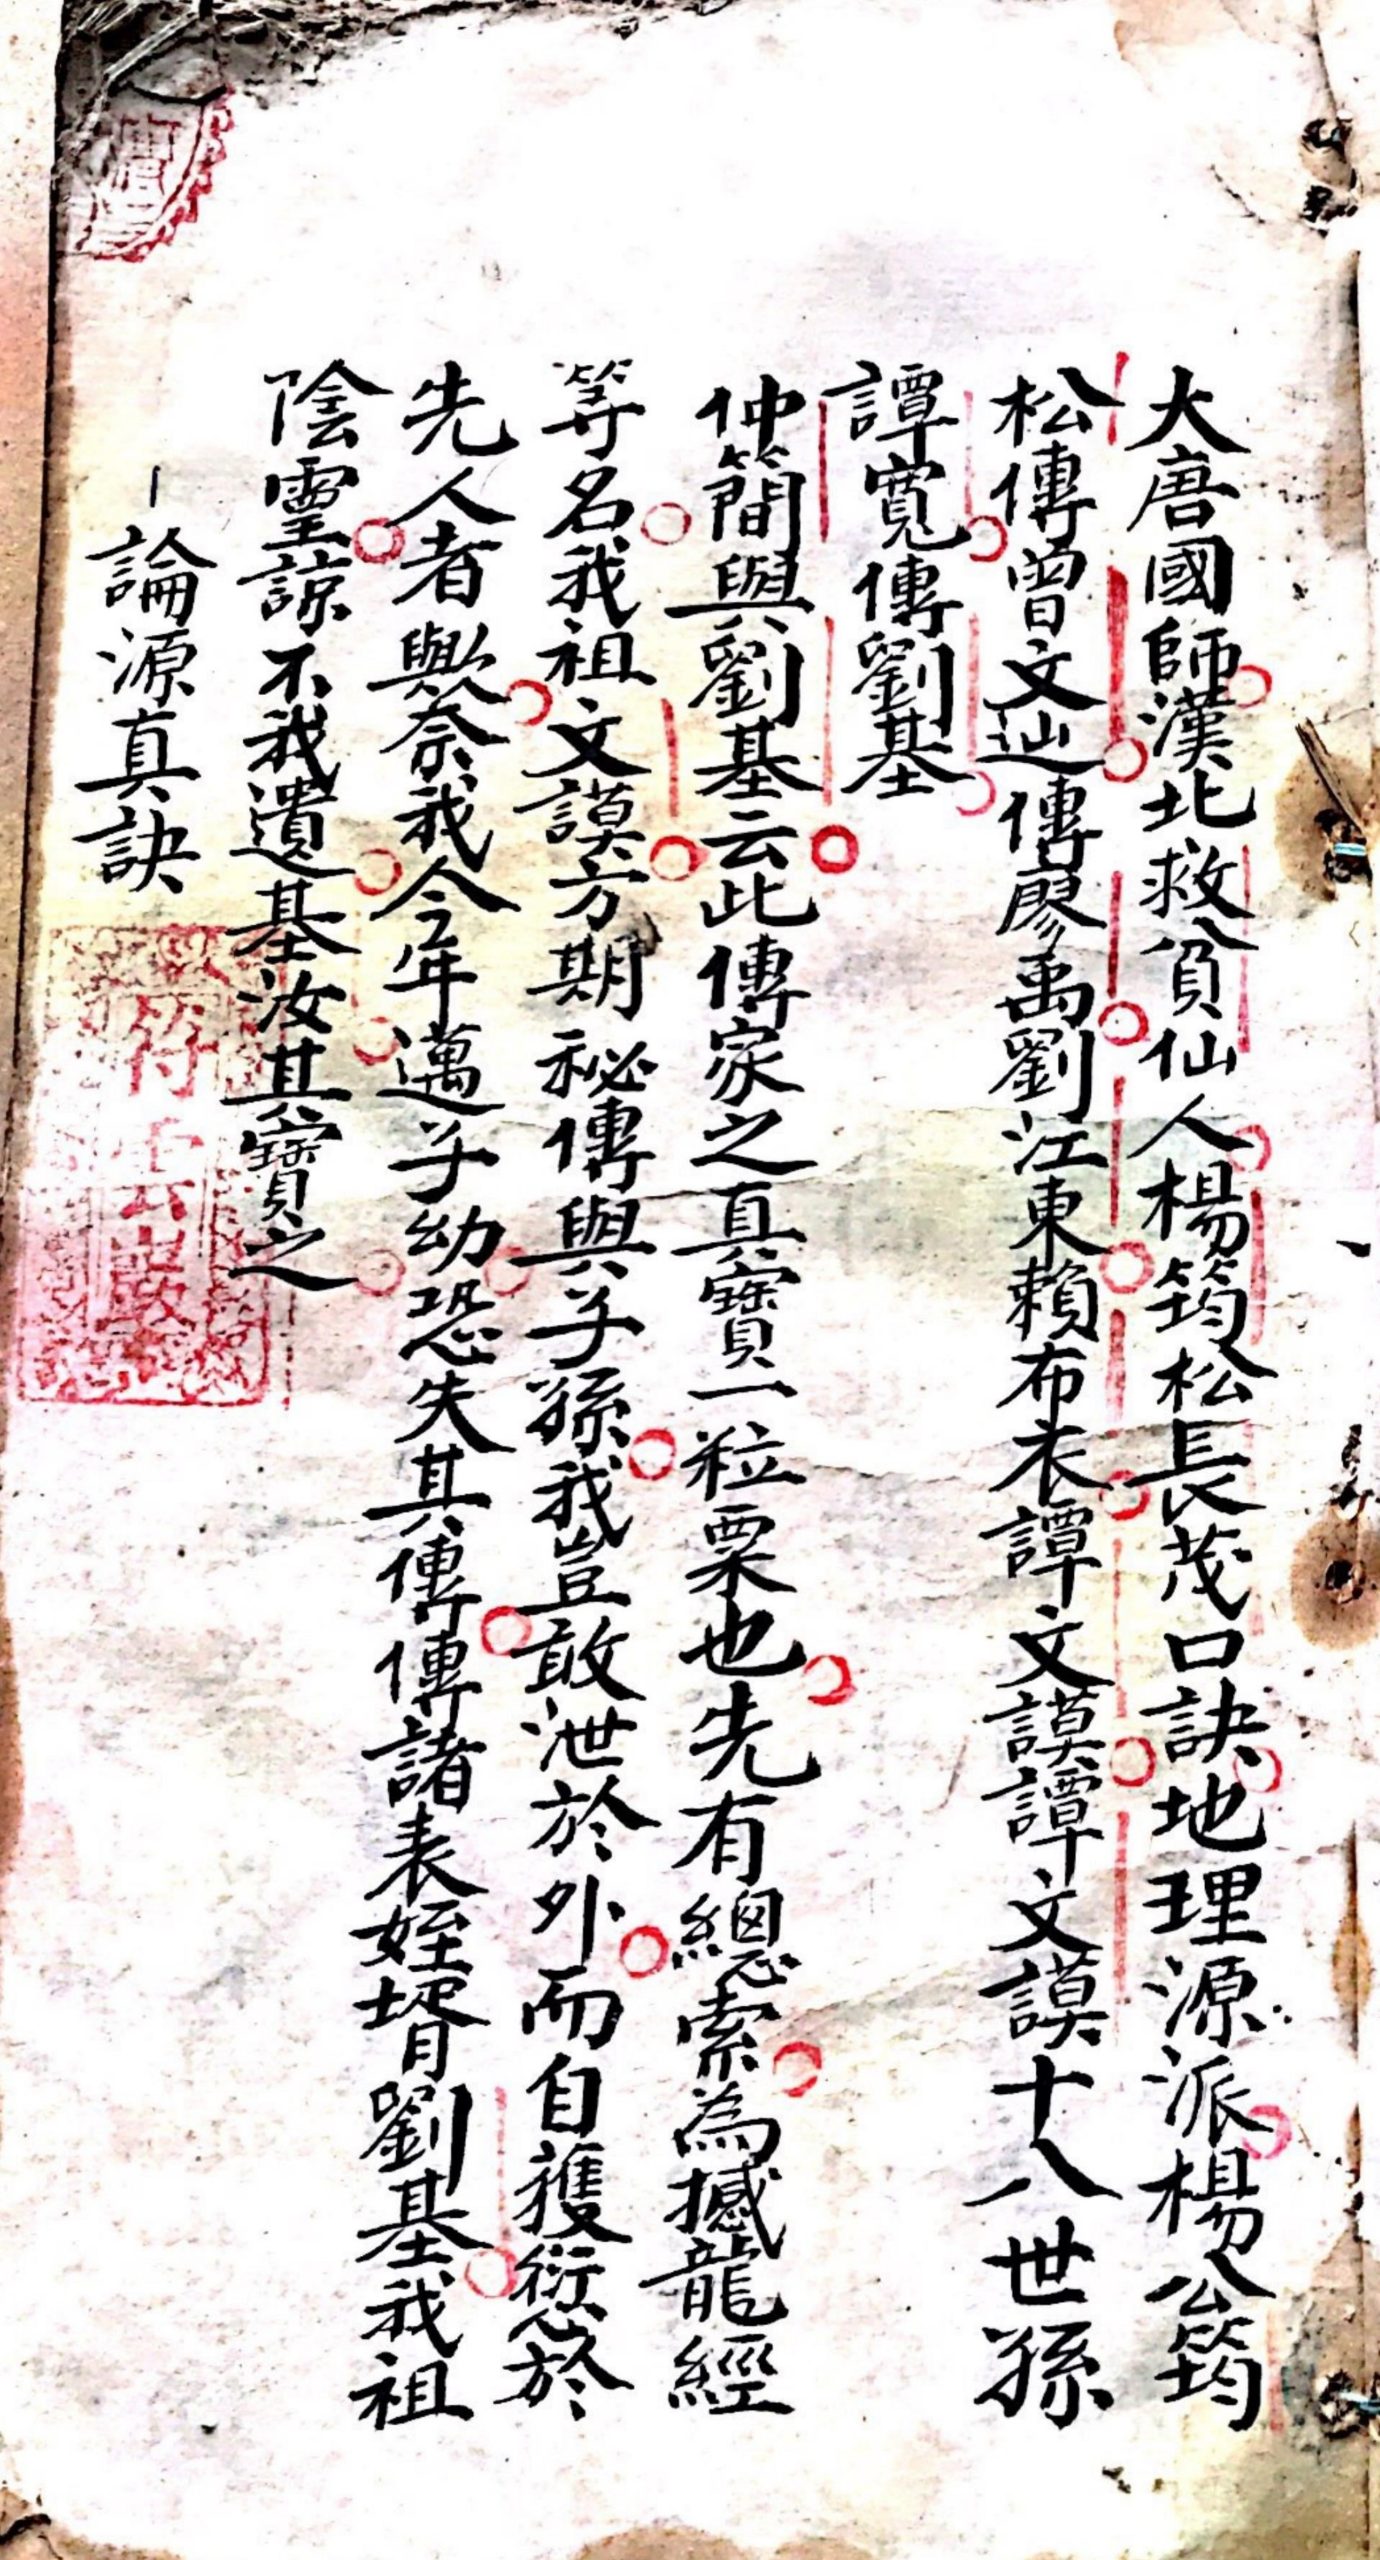 大唐國師漢北救貧仙人楊筠松長茂口訣地理源派楊公筠
松傳曾文辿傳廖禹劉江東賴布衣譚文謨譚文謨十八世孫
譚寬傳劉基
仲簡與劉基云此傳家之真寶一粒粟也先有總索為撼龍經
等名我祖文謨方期秘傳與子孫我豈敢泄於外而自獲愆於
先人者歟奈我今年邁子幼恐失其傳傳諸表姪壻劉基我祖
陰靈諒不我遺基汝其寶之
論源真訣
符雲巖